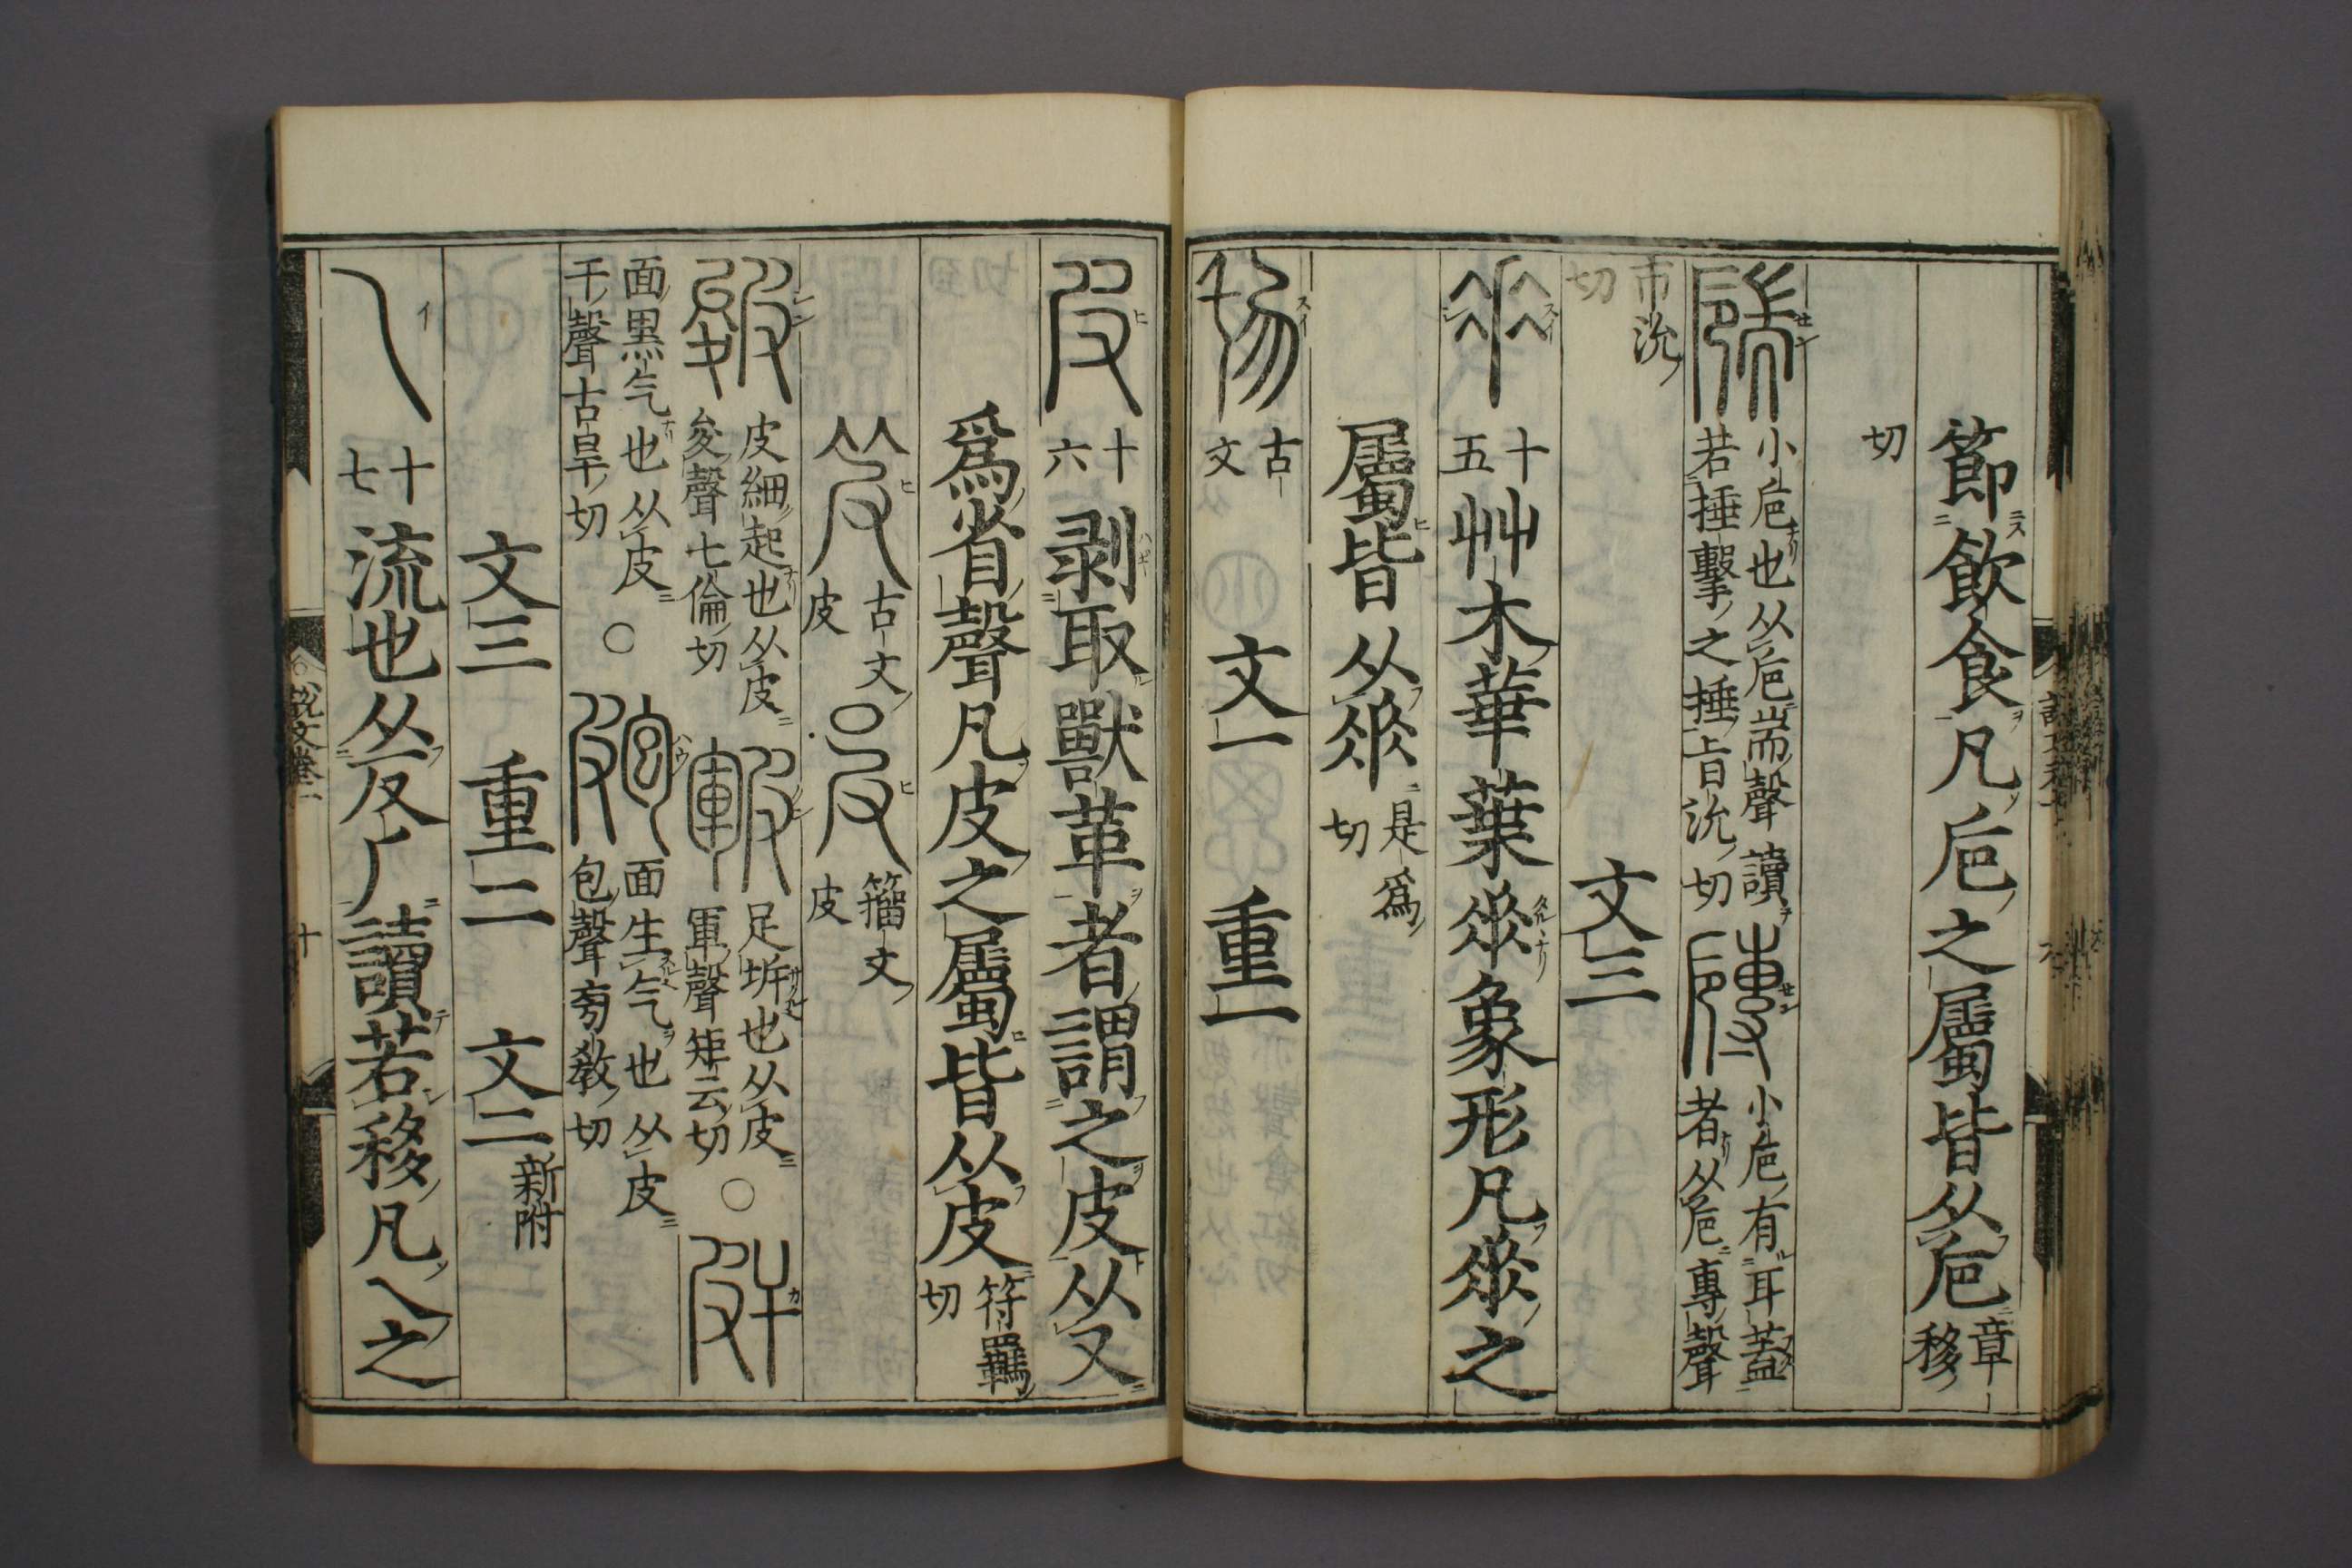 節飲食凡巵之屬皆从巵章移
切
小巵也从巵耑聲讀
若捶擊之捶旨沇切
小巵有耳蓋
者从巵專聲
市沇
切
文三
十五
艸木華葉𠂹象形凡𠂹之
屬皆从𠂹是爲切
古文
文一
重一
十六
剥取獸革者謂之皮从又
爲省聲凡皮之屬皆从皮符羈切
古文皮
籀文皮
皮細起也从皮
夋聲七倫切
足坼也从皮
軍聲矩云切
〇
面黒气也从皮
干聲古旱切
〇
面生气也从皮
包聲㫄教切
文三
重二
文二新附
十七
流也从反𠂆讀若移凡乁之
說文卷十二
十